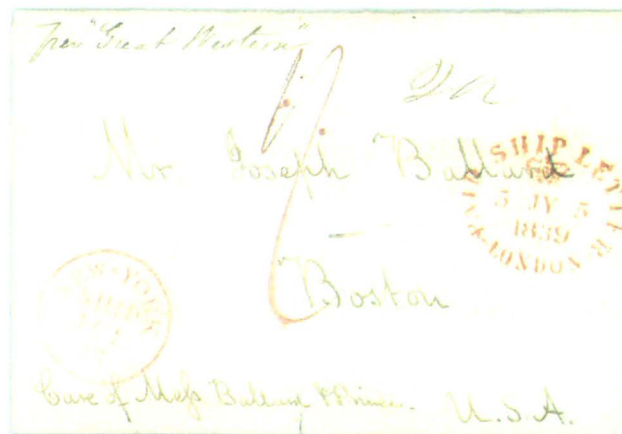 per "Great Western"
Mr. Joseph Ballard
SHIP LETTER
5 JY 5
1839
LONDON
Boston
NEW-YORK
SHIP
Care of Mess Ballard &
U.S.A.